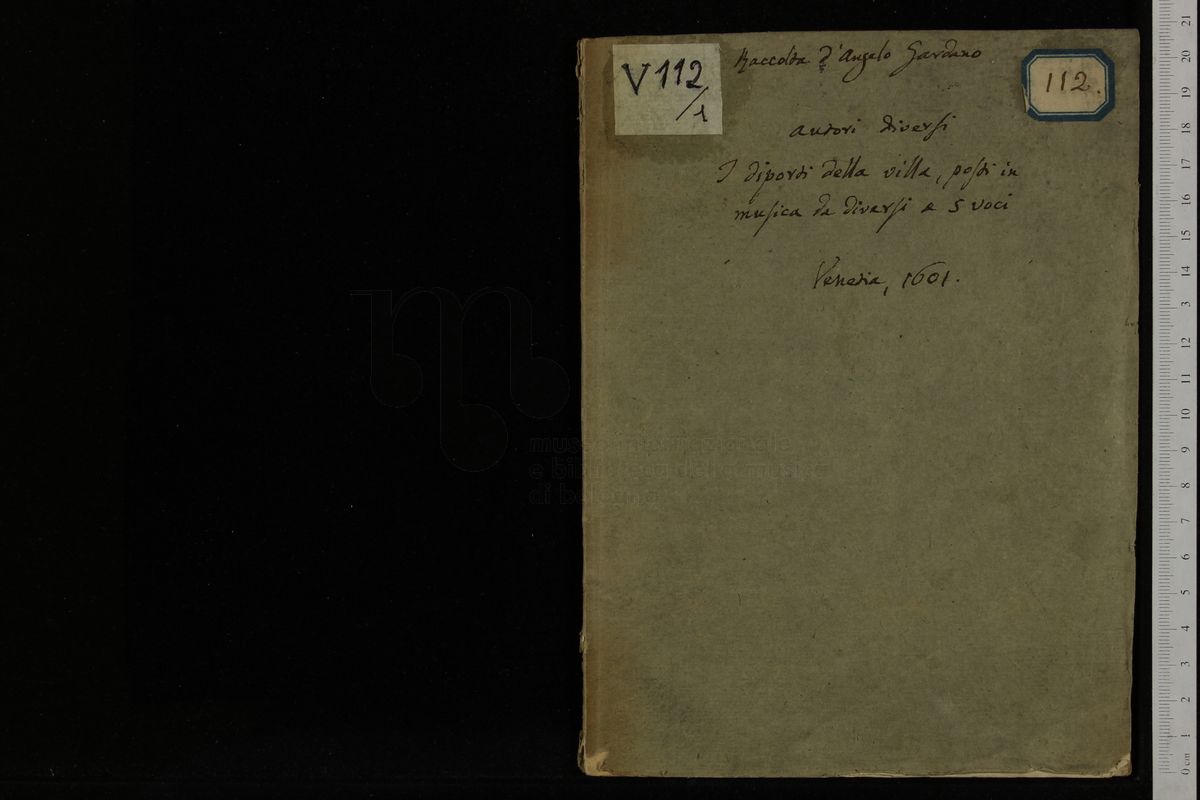 V 112
/1
Raccolta d'Angelo Gardano
112.
autori diversi
I diporti della villa, posti in
musica da diversi a 5 voci
Venetia, 1601.
museo internazionale
e biblioteca della musica
di bologna
21
20
19
18
17
16
15
14
3
12
11
10
9
8
7
6
5
4
3
2
1
0 cm